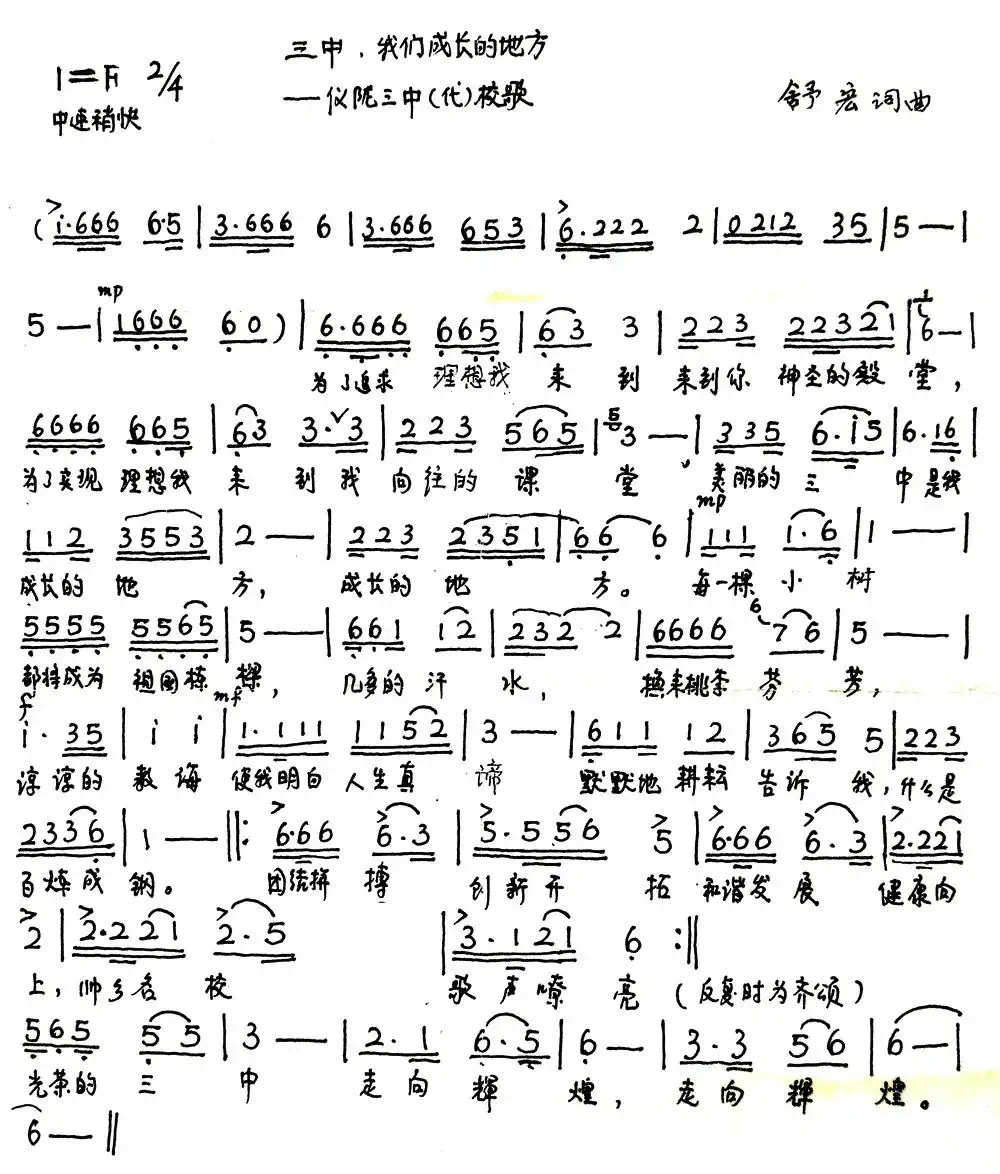 三中，我们成长的地方
1=F 2/4
——仪陇三中(代)校歌
中速稍快
舒宏词曲
(i·666 6·5|3·666 6|3·666 653|6·222 2|0212 35|5—|
mp
5—|1666 60)|6·666 665|63 3|223 22321|6—|
为了追求 理想我 来 到 来到你 神圣的殿 堂，
6666 665|63 3·3|223 565|3—|335 6·i5|6·16|
为了实现 理想我 来 到我 向往的 课 堂 美丽的 三 中是我
mp
112 3553|2—|223 2351|66 6|111 1·6|1—|
成长的 地 方， 成长的 地 方。 每一棵 小 树
5555 5565|5—|661 12|232 2|6666 76|5—|
都将成为 祖国栋 樑， 几多的 汗 水， 换来桃李 芬 芳，
f mf
i· 35|i i|1·111 1152|3—|611 12|365 5|223|
谆 谆的 教 诲 使我明白 人生真 谛 默默地 耕耘 告诉 我，什么是
2336|1—‖:6·66 6·3|5·556 5|6·66 6·3|2·221|
百炼成 钢。 团结拼 搏 创新开 拓 和谐发 展 健康向
2|2·221 2·5 |3·121 6:‖
上，帅乡名 校 歌声嘹 亮 (反复时为齐颂)
565 55|3—|2·1 6·5|6—|3·3 56|6—|
光荣的 三 中 走 向 辉 煌， 走 向 辉 煌。
6—‖